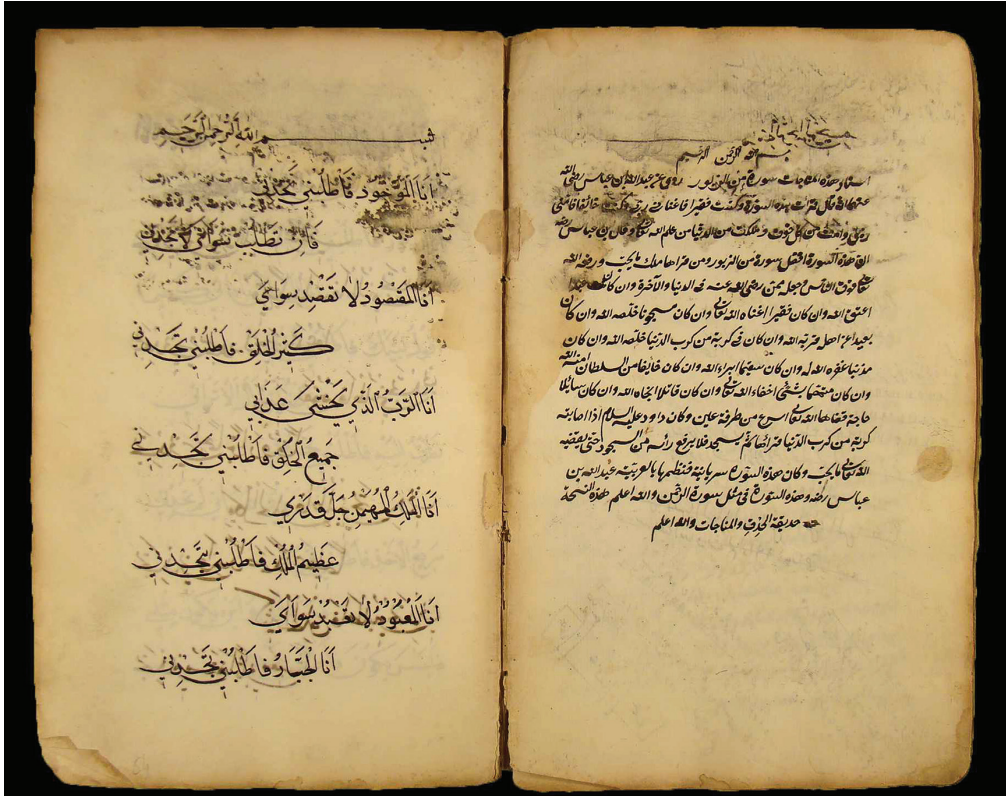 بسم الله الرحمن الرحيم
اسناد هذه المناجات سورة من الزبور روى عن عبدالله ابن عباس رضى الله
عنهما انه قال قرات هذه السورة وكنت فقيرا فاغنانى ربى وكنت خائفا فامننى
ربى وامنت من كل خوف الدنيا من علم الله تعالى وقال ابن عباس رضه
ان هذه السورة افضل سورة من الزبور ومن قراها ملك ما يحب ورفعه الله
فوق الناس وجعله ممن رضى الله عنه فى الدنيا والآخرة وان كان عبدا
اعتق الله وان كان فقيرا اغناه الله تعالى وان كان مسجونا خلصه الله وان كان
بعيدا عن اهله قربه الله وان كان فى كربة من كرب الدنيا خلصه الله وان كان
مذنبا غفره الله له وان كان سقيما ابراه الله وان كان خايفا من السلطان امنه الله
وان كان متهما بشئ اخفاه الله تعالى وان كان قاتلا انجاه الله وان كان سايلا
حاجة قضاها الله تعالى اسرع من طرفة عين وكان داود عليه السلام اذا اصابته
كربة من كرب الدنيا قراها ثم يسجد فلا يرفع رأسه من السجود حتى يقضيه
الله تعالى ما يحب وكان هذه السورة سريانية فنظمها بالعربية عبدالله بن
عباس رضه وهذه السورة فى مثل سورة الرحمن والله اعلم هذه النسخة
حديقة والمناجات والله اعلم
بسم الله الرحمن الرحيم
انا الموجود فاطلبني تجدني
فان تطلب سوائي لا تجدني
انا المقصود لا تقصد سوائي
كثير الخلق فاطلبني تجدني
انا الرب الذي يخشى عذابي
جميع الخلق فاطلبني تجدني
انا الملك المهيمن جل قدري
عظيم الملك فاطلبني تجدني
انا المعبود لا تعبد سوائي
انا الجبار فاطلبني تجدني